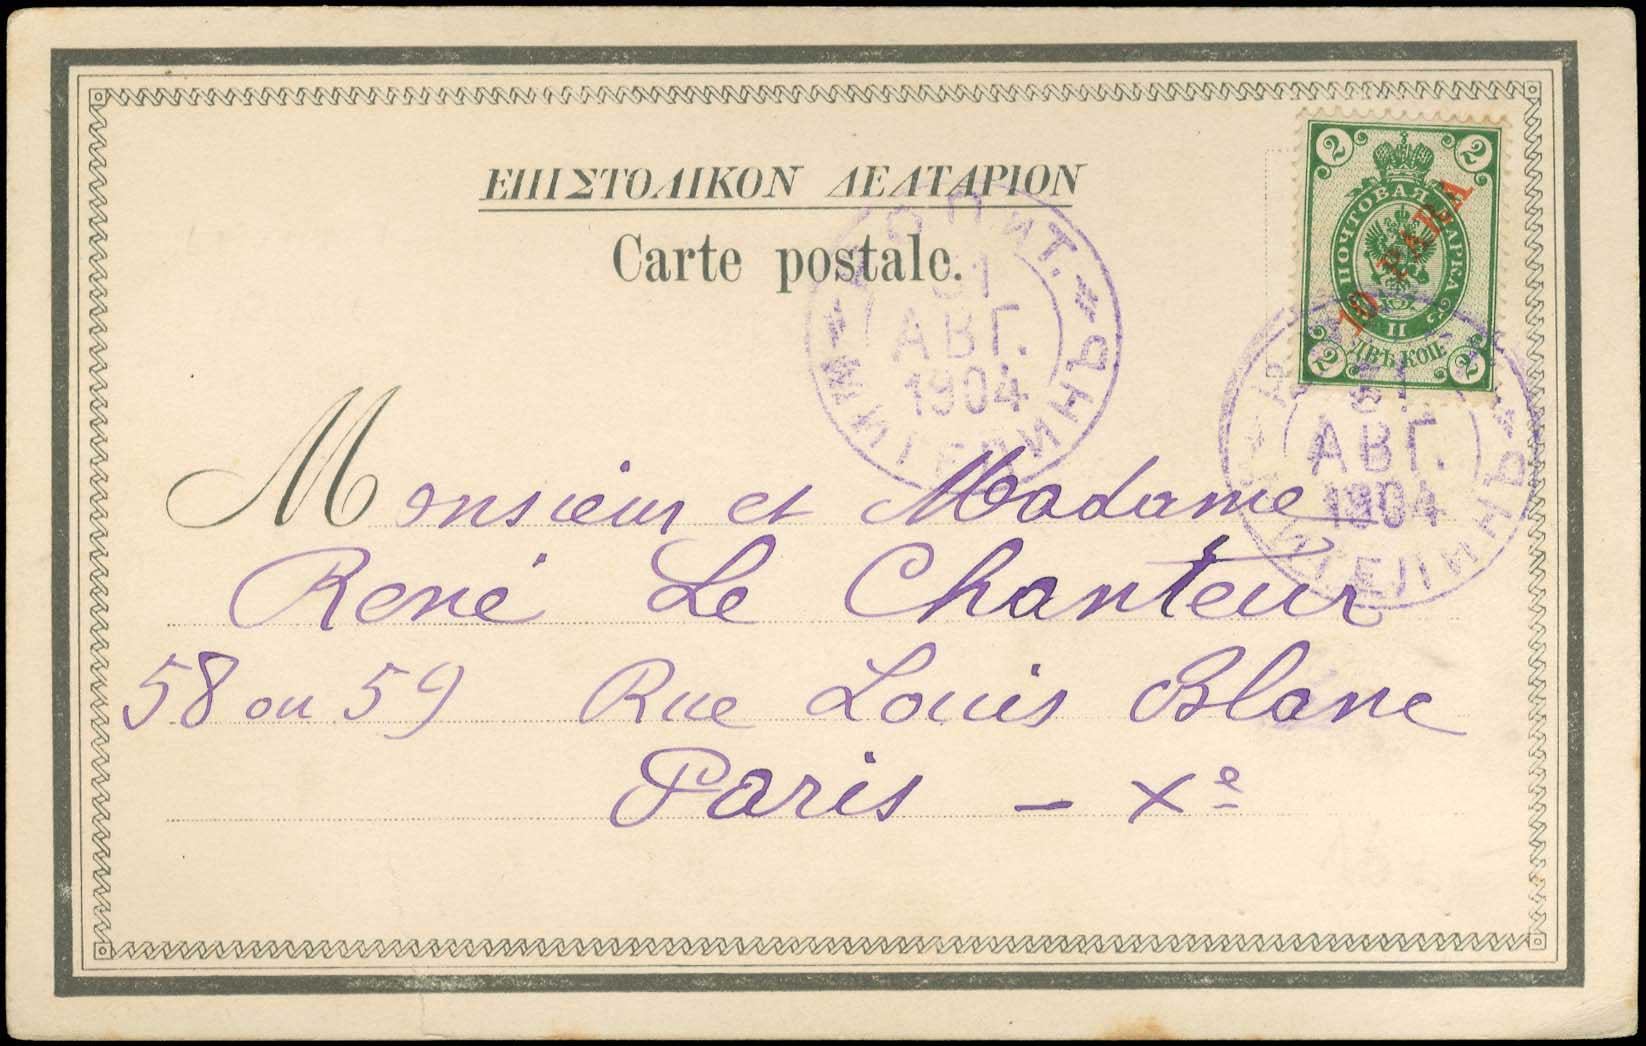 ΕΠΙΣΤΟΛΙΚΟΝ ΔΕΛΤΑΡΙΟΝ
Carte postale.
2 2
ПОЧТОВАЯ МАРКА
10 PARA
II
ДВѢ КОП.
2 2
РОПИТ.
31
АВГ.
1904
МИТЕЛИНЪ
31
АВГ.
1904
МИТЕЛИНЪ
Monsieur et Madame
René Le Chanteur
58 ou 59 Rue Louis Blanc
Paris - Xe